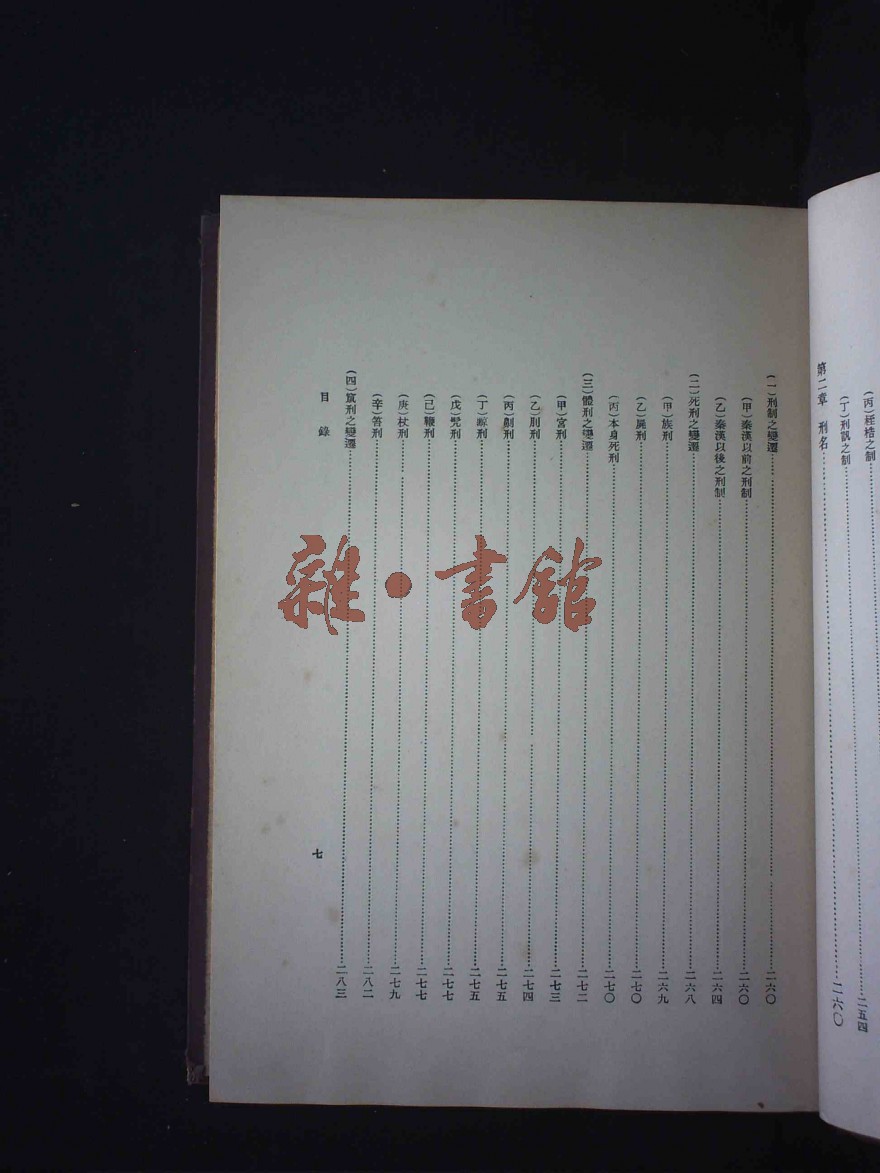 (丙)桎梏之制……二五四
(丁)刑訊之制
第二章 刑名……二六〇
(一)刑制之變遷……二六〇
(甲)秦漢以前之刑制……二六〇
(乙)秦漢以後之刑制……二六四
(二)死刑之變遷……二六八
(甲)族刑……二六九
(乙)屍刑……二七〇
(丙)本身死刑……二七〇
(三)體刑之變遷……二七二
(甲)宮刑……二七三
(乙)刖刑……二七四
(丙)劓刑……二七五
(丁)黥刑……二七五
(戊)髡刑……二七七
(己)鞭刑……二七七
(庚)杖刑……二七九
(辛)笞刑……二八二
(四)宣刑之變遷……二八三
目錄
七
雜·書館